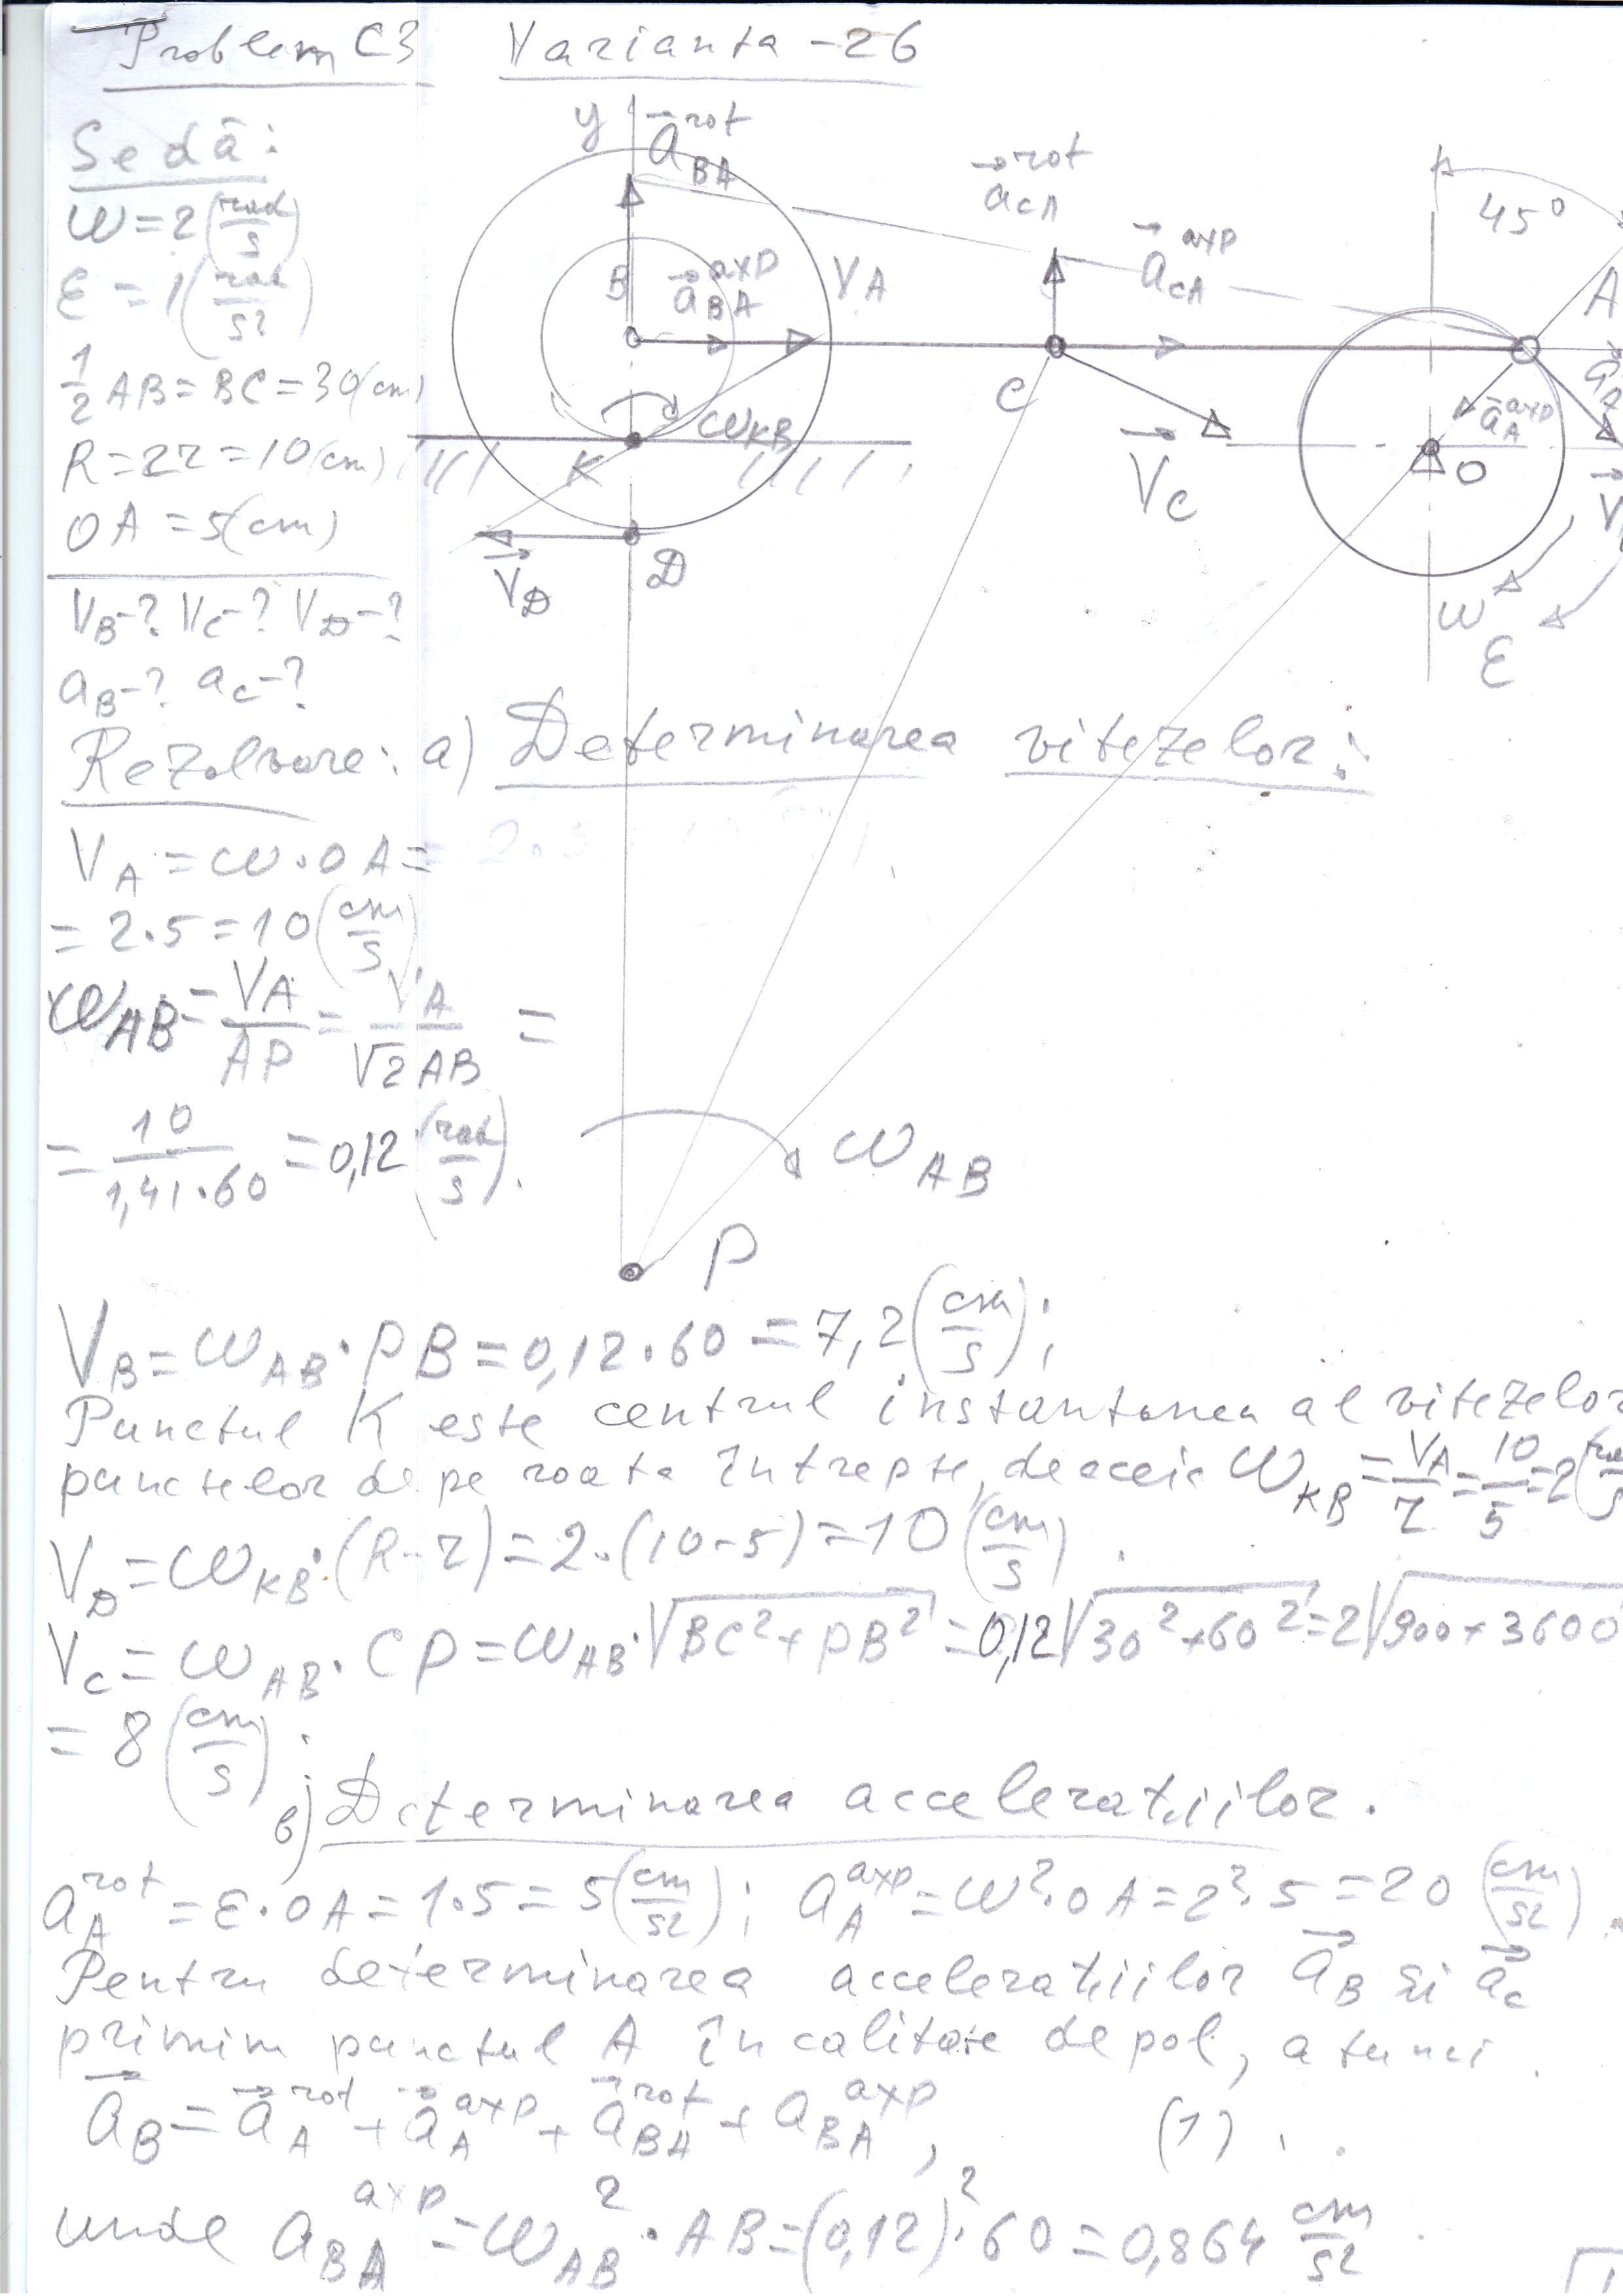 Problem C3 Varianta -26
Se dă:
ω=2(rad/s)
ε=1(rad/s²)
1/2 AB=BC=30(cm)
R=2r=10(cm)
OA=5(cm)
V_B-? V_C-? V_D-?
a_B-? a_C-?
y a⃗_BA^rot
a⃗_CA^rot
45°
B a⃗_BA^axp V_A
a⃗_CA^axp
A
C
ω_KB
K
a⃗_A^axp
O
V⃗_C
V⃗_D
D
ω
ε
Rezolvare: a) Determinarea vitezelor:
V_A=ω·OA=
=2·5=10(cm/s)
ω_AB=V_A/AP=V_A/√2AB=
=10/1,41·60=0,12(rad/s).
ω_AB
P
V_B=ω_AB·PB=0,12·60=7,2(cm/s);
Punctul K este centrul instantaneu al vitezelor
punctelor de pe roata în trepte, de aceia ω_KB=V_A/r=10/5=2(rad/s
V_D=ω_KB·(R-r)=2·(10-5)=10(cm/s).
V_C=ω_AB·CP=ω_AB·√BC²+PB²=0,12√30²+60²=2√900+3600
=8(cm/s).
b) Determinarea acceleratiilor.
a_A^rot=ε·OA=1·5=5(cm/s²); a_A^axp=ω²·OA=2²·5=20(cm/s²).
Pentru determinarea acceleratiilor a⃗_B si a⃗_C
primim punctul A în calitate de pol, atunci.
a⃗_B=a⃗_A^rot+a⃗_A^axp+a⃗_BA^rot+a_BA^axp, (1).
unde a_BA^axp=ω_AB²·AB=(0,12)²·60=0,864 cm/s².